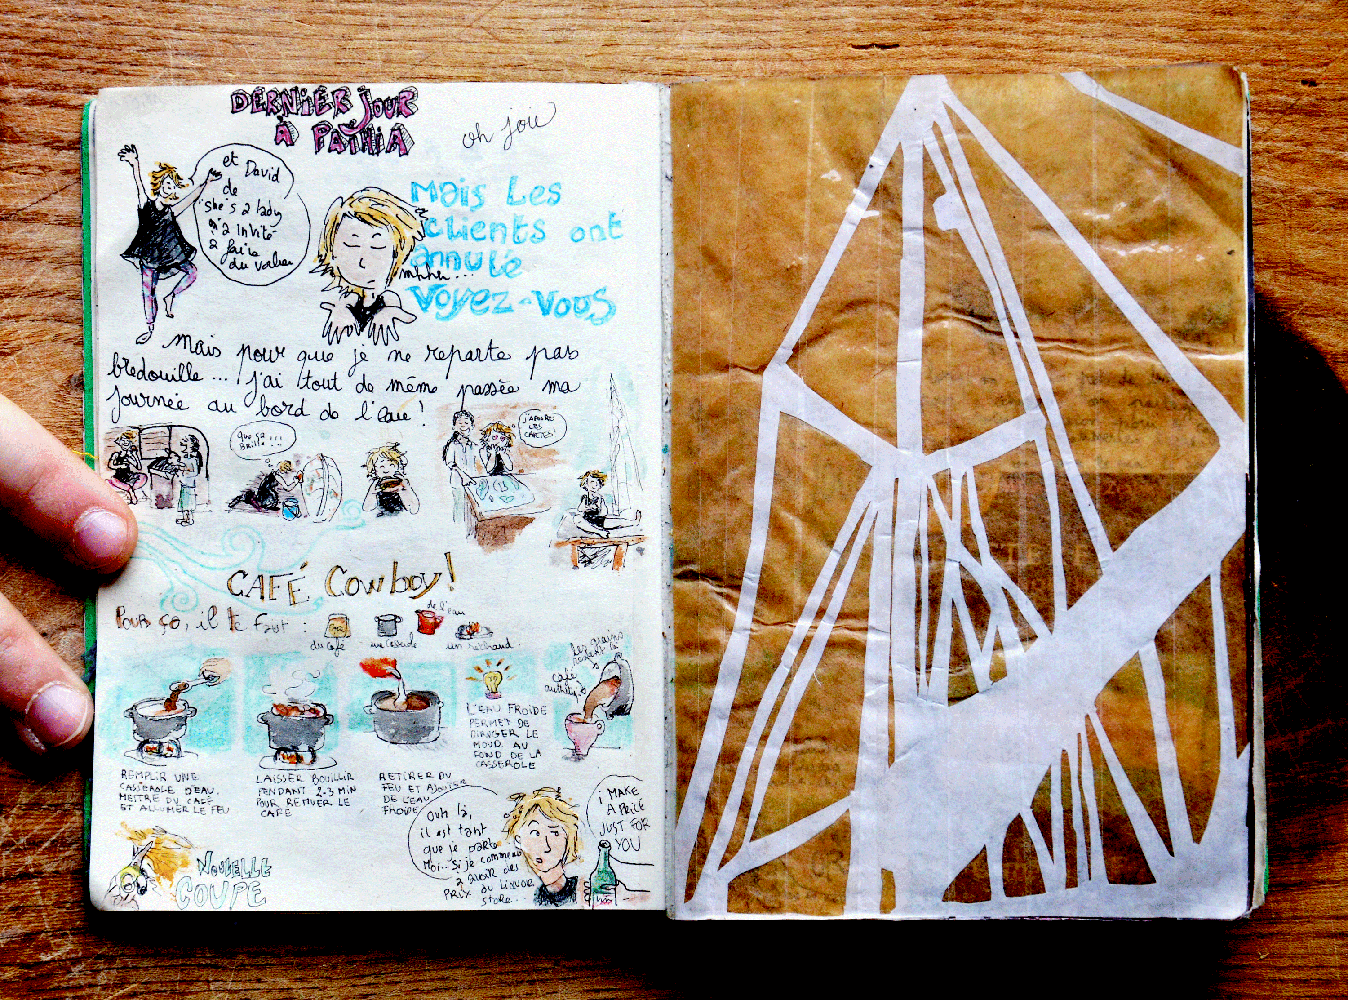 DERNIER JOUR
À PAIHIA
oh joie
et David
de
"she's a lady
m'a invité
à faire
du voilier
Mais Les
clients ont
annulé
mhhh...
Voyez-vous
Mais pour que je ne reparte pas
bredouille... j'ai tout de même passée ma
journée au bord de l'eau!
que ça
brille!!!
J'ADORE
LES
CARTES!
CAFÉ Cowboy!
Pour ço, il te faut :
du café
une casserole
de l'eau
un réchaud.
REMPLIR UNE
CASSEROLE D'EAU.
METTRE DU CAFÉ
ET ALLUMER LE FEU
LAISSER BOUILLIR
PENDANT 2-3 MIN
POUR REMUER LE
CAFÉ
RETIRER DU
FEU ET AJOUTER
DE L'EAU
FROIDE
L'EAU FROIDE
PERMET DE
DIRIGER LE
MOUD AU
FOND DE LA
CASSEROLE
les grains
restent là
café
NOUVELLE
COUPE
Ouh là,
il est tant
que je parte
Moi... Si je commence
à avoir des
PRIX au liquor
store...
I MAKE
A PRICE
JUST FOR
YOU